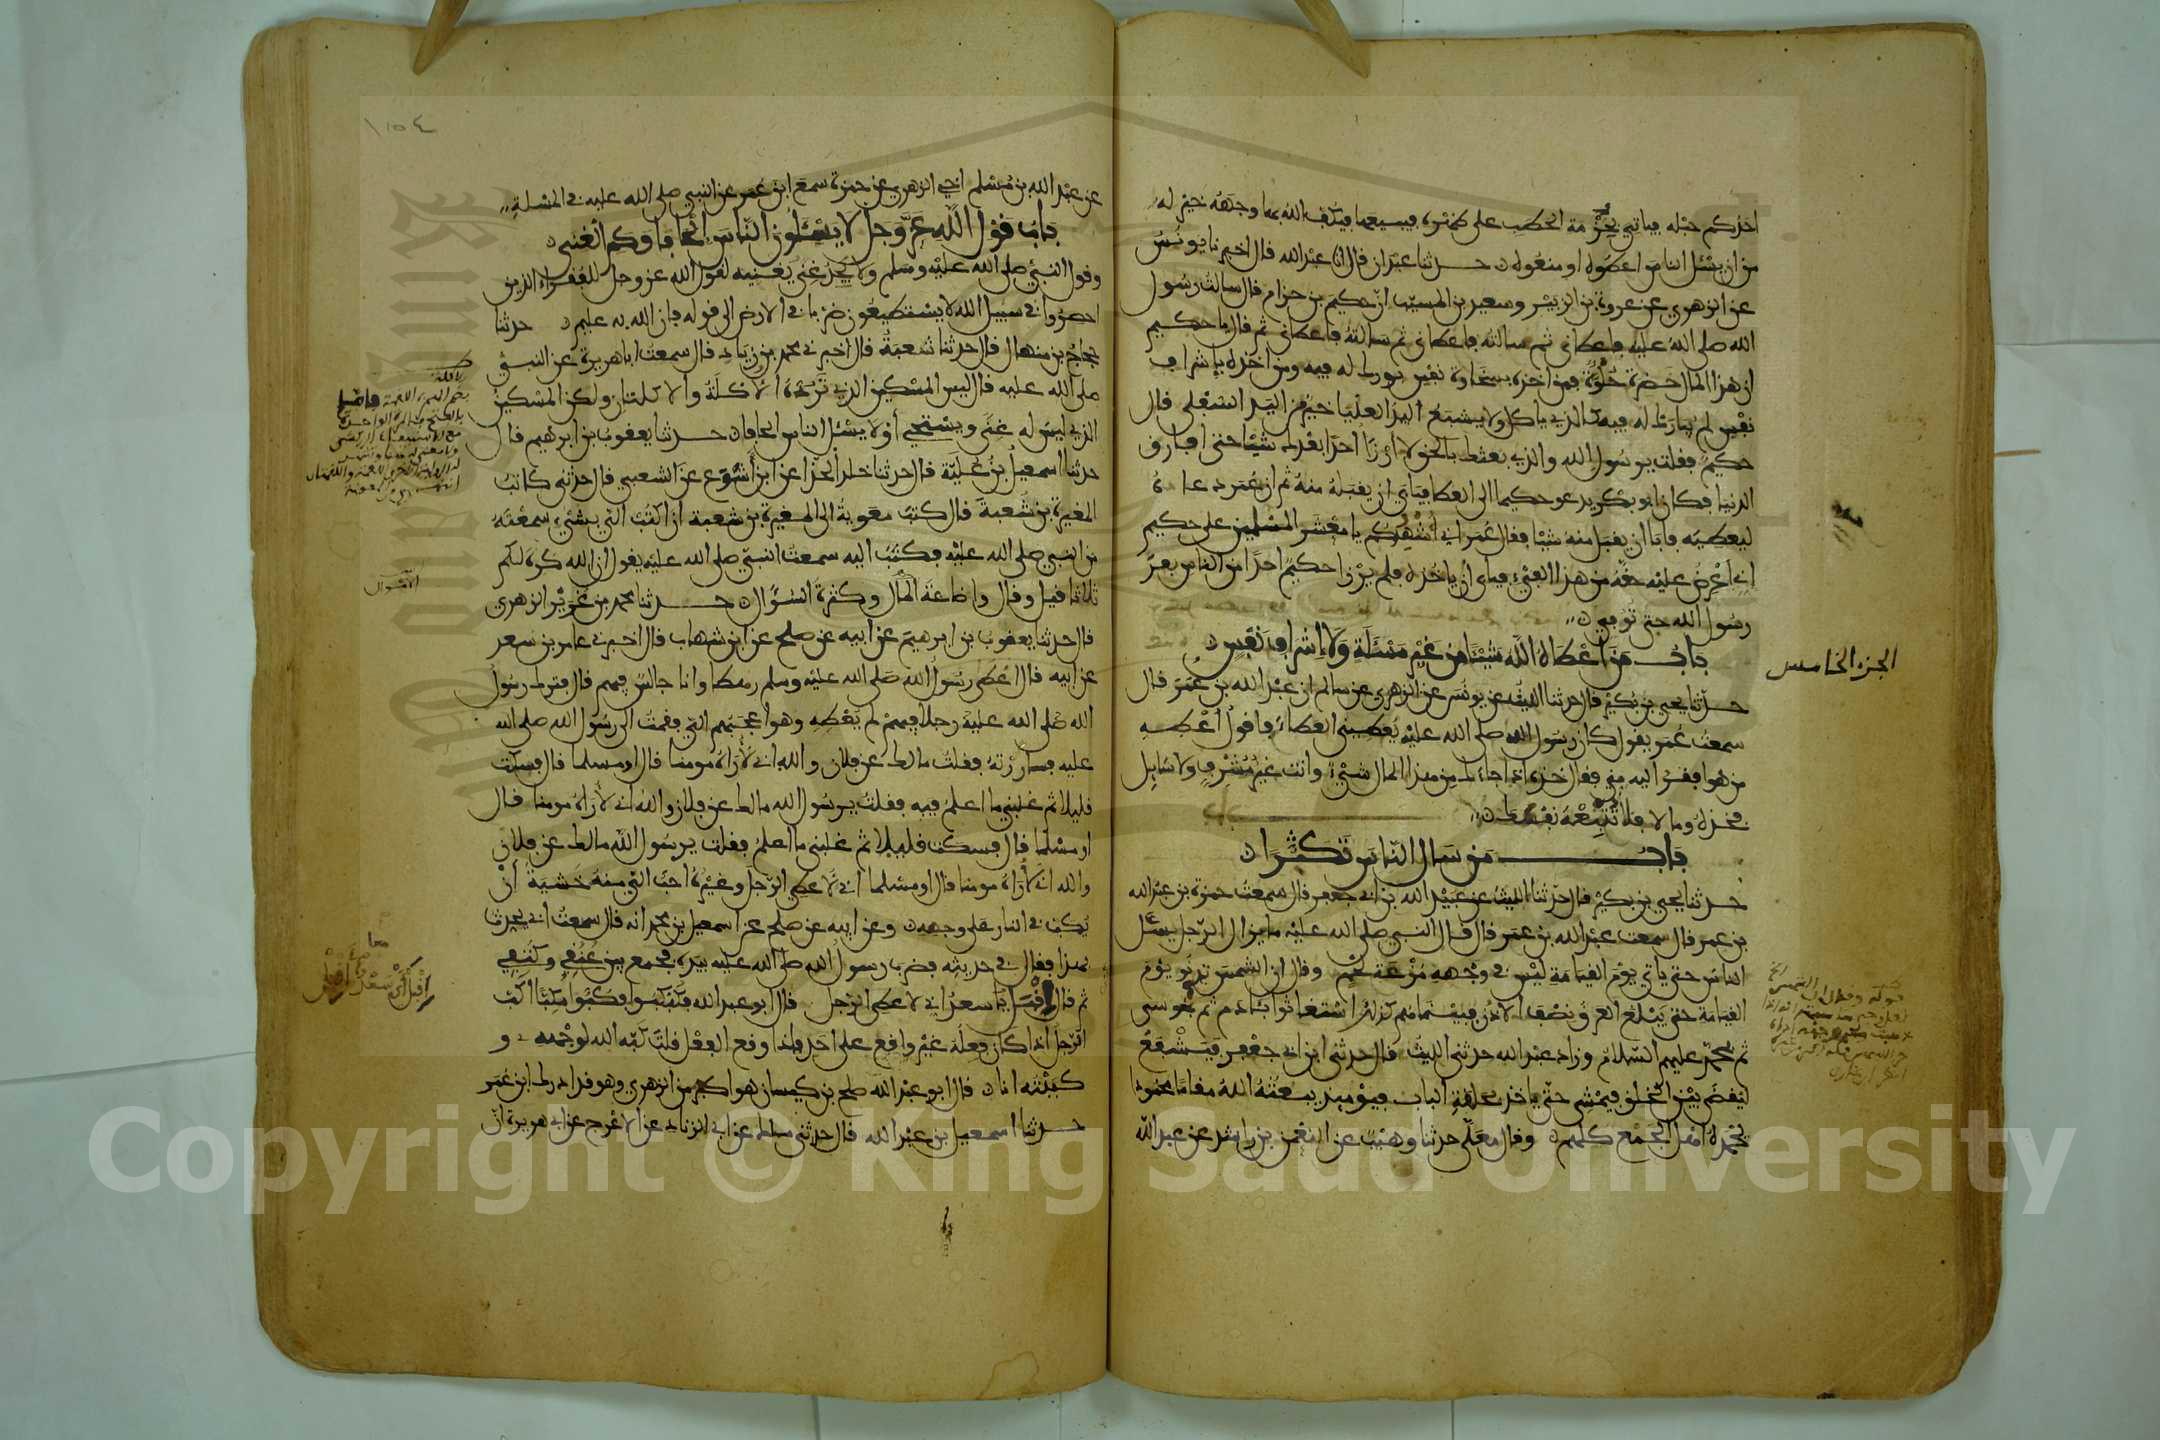 احدكم حبله فياتي بحزمة الحطب على ظهره فيبيعها فيكف الله بها وجهه خير له
من ان يسئل الناس اعطوه او منعوه حدثنا عبدان قال انا عبد الله قال اخبرنا يونس
عن الزهري عن عروة بن الزبير وسعيد بن المسيب ان حكيم بن حزام قال سالت رسول
الله صلى الله عليه فاعطاني ثم سالته فاعطاني ثم سالته فاعطاني ثم قال يا حكيم
ان هذا المال خضرة حلوة فمن اخذه بسخاوة نفس بورك له فيه ومن اخذه باشراف
نفس لم يبارك له فيه كالذي ياكل ولا يشبع اليد العليا خير من اليد السفلى قال
حكيم فقلت يرسول الله والذي بعثك بالحق لا ارزا احدا بعدك شيئا حتى افارق
الدنيا فكان ابو بكر يدعو حكيما الى العطا فيابى ان يقبله منه ثم ان عمر دعاه
ليعطيه فابا ان يقبل منه شيئا فقال عمر اني اشهدكم يا معشر المسلمين على حكيم
اني اعرض عليه حقه من هذا الفيء فيابى ان ياخذه فلم يرزا حكيم احدا من الناس بعد
رسول الله حتى توفي
باب من اعطاه الله شيئا من غير مسئلة ولا اشراف نفس
الجزء الخامس
حدثنا يحيى بن بكير قال حدثنا الليث عن يونس عن الزهري عن سالم ان عبد الله بن عمر قال
سمعت عمر يقول كان رسول الله صلى الله عليه يعطيني العطاء فاقول اعطه
من هو افقر اليه مني فقال خذه اذا جاءك من هذا المال شيء وانت غير مشرف ولا سايل
فخذه وما لا فلا تتبعه نفسك
باب من سال الناس تكثرا
حدثنا يحيى بن بكير قال حدثنا الليث عن عبيد الله بن ابي جعفر قال سمعت حمزة بن عبد الله
بن عمر قال سمعت عبد الله بن عمر قال قال النبي صلى الله عليه ما يزال الرجل يسئل
الناس حتى ياتي يوم القيامة ليس في وجهه مزعة لحم وقال ان الشمس تدنو يوم
القيامة حتى يبلغ العرق نصف الاذن فبينما هم كذلك استغاثوا بئادم ثم بموسى
ثم بمحمد عليهم السلام وزاد عبد الله حدثني الليث قال حدثني ابن ابي جعفر فيشفع
ليقضى بين الخلق فيمشي حتى ياخذ بحلقة الباب فيومئذ يبعثه الله مقاما محمودا
يحمده اهل الجمع كلهم وقال معلى حدثنا وهيب عن النعمن بن راشد عن عبد الله
١٥٤
عن عبد الله بن مسلم اخي الزهري عن حمزة سمع ابن عمر عن النبي صلى الله عليه في المسلة
باب قول الله عز وجل لا يسئلون الناس الحافا وكم الغنى
وقول النبي صلى الله عليه وسلم ولا يجد غنى يغنيه لقول الله عز وجل للفقراء الذين
احصروا في سبيل الله لا يستطيعون ضربا في الارض الى قوله فان الله به عليم حدثنا
حجاج بن منهال قال حدثنا شعبة قال اخبرني محمد بن زياد قال سمعت ابا هريرة عن النبي
صلى الله عليه قال ليس المسكين الذي ترده الاكلة والاكلتان ولكن المسكين
الذي ليس له غنى ويستحيي او لا يسئل الناس الحافا حدثنا يعقوب بن ابرهيم قال
حدثنا اسمعيل بن علية قال حدثنا خلد الحذا عن ابن اشوع عن الشعبي قال حدثني كاتب
المغيرة بن شعبة قال كتب معوية الى المغيرة بن شعبة ان اكتب الي بشيء سمعته
من النبي صلى الله عليه فكتب اليه سمعت النبي صلى الله عليه يقول ان الله كره لكم
ثلاثا قيل وقال واضاعة المال وكثرة السؤال حدثنا محمد بن غرير الزهري
الاموال
قال حدثنا يعقوب بن ابرهيم عن ابيه عن صلح عن ابن شهاب قال اخبرني عامر بن سعد
عن ابيه قال اعطى رسول الله صلى الله عليه وسلم رهطا وانا جالس فيهم قال فترك رسول
الله صلى الله عليه رجلا فيهم لم يعطه وهو اعجبهم الي فقمت الى رسول الله صلى الله
عليه فساررته فقلت ما لك عن فلان والله اني لاراه مومنا قال او مسلما قال فسكت
قليلا ثم غلبني ما اعلم فيه فقلت يرسول الله ما لك عن فلان والله اني لاراه مومنا قال
او مسلما قال فسكت قليلا ثم غلبني ما اعلم فقلت يرسول الله ما لك عن فلان
والله اني لاراه مومنا قال او مسلما اني لاعطي الرجل وغيره احب الي منه خشية ان
يكب في النار على وجهه وعن ابيه عن صلح عن اسمعيل بن محمد انه قال سمعت ابي يحدث
بهذا فقال في حديثه فضرب رسول الله صلى الله عليه بيده فجمع بين عنقي وكتفي
ثم قال اقبل يا سعد اني لاعطي الرجل قال ابو عبد الله فكبكبوا فكبوا مكبا اكب
الرجل اذا كان فعله غير واقع على احد فاذا وقع الفعل قلت كبه الله لوجهه و
كببته انا قال ابو عبد الله صلح بن كيسان هو اكبر من الزهري وهو قد ادرك ابن عمر
حدثنا اسمعيل بن عبد الله قال حدثني ملك عن ابي الزناد عن الاعرج عن ابي هريرة ان
Copyright © King Saud University